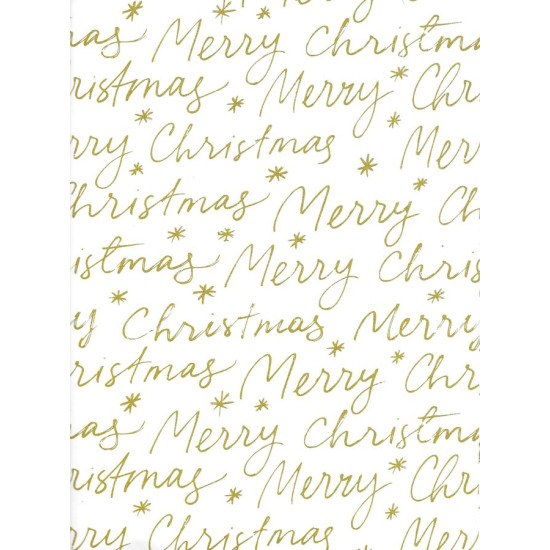 as Merry Christmas
ristmas Merry Chr
rry Christmas Mer
hristmas Merry Ch
istmas Merry Chris
y Christmas Merry
ristmas Merry Chr
as Merry Christmas
ristmas Merry Ch
rry Christmas Mer